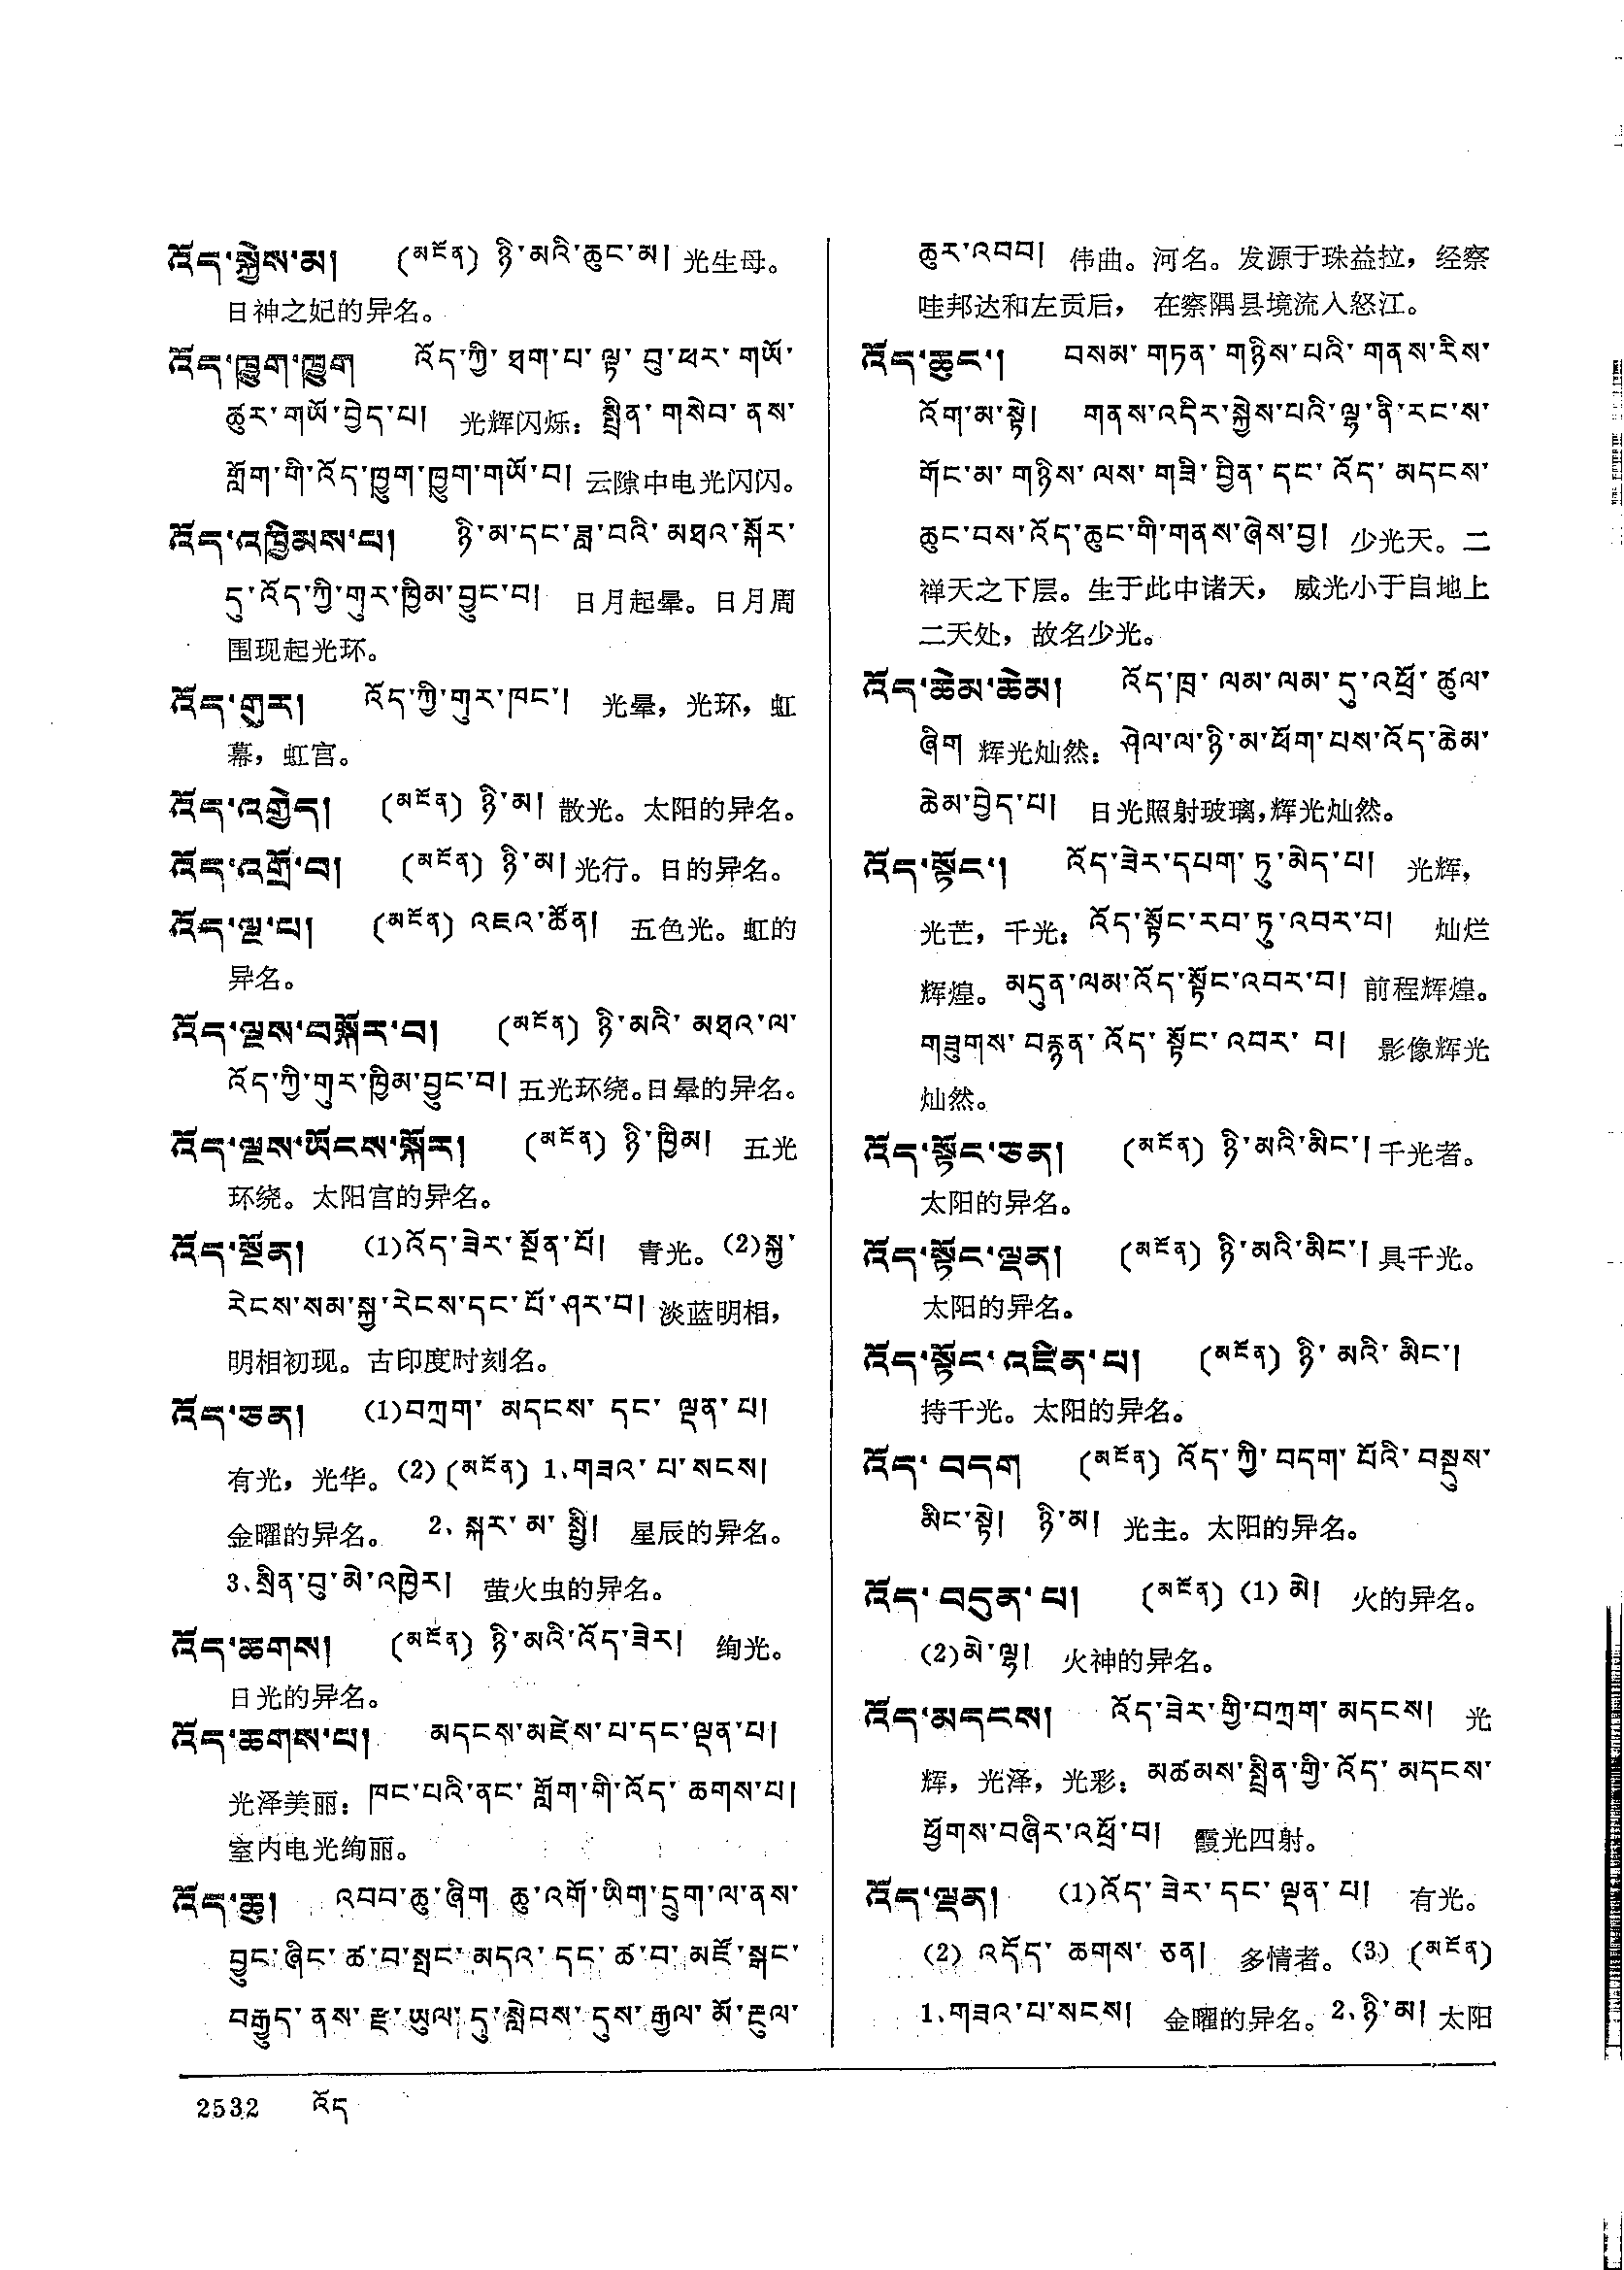 འོད་སྐྱེས་མ། (མངོན) ཉི་མའི་ཆུང་མ། 光生母。
日神之妃的异名。
འོད་ཁྱུག་ཁྱུག འོད་ཀྱི་ཐག་པ་ལྟ་བུ་ཕར་གཡོ་
ཚུར་གཡོ་བྱེད་པ། 光辉闪烁：སྤྲིན་གསེབ་ནས་
གློག་གི་འོད་ཁྱུག་ཁྱུག་གཡོ་བ། 云隙中电光闪闪。
འོད་འཁྱིམས་པ། ཉི་མ་དང་ཟླ་བའི་མཐའ་སྐོར་
དུ་འོད་ཀྱི་གུར་ཁྱིམ་བྱུང་བ། 日月起晕。日月周
围现起光环。
འོད་གུར། འོད་ཀྱི་གུར་ཁང་། 光晕，光环，虹
幕，虹宫。
འོད་འགྱེད། (མངོན) ཉི་མ། 散光。太阳的异名。
འོད་འགྲོ་བ། (མངོན) ཉི་མ། 光行。日的异名。
འོད་ལྔ་པ། (མངོན) འཇའ་ཚོན། 五色光。虹的
异名。
འོད་ལྔས་བསྐོར་བ། (མངོན) ཉི་མའི་མཐའ་ལ་
འོད་ཀྱི་གུར་ཁྱིམ་བྱུང་བ། 五光环绕。日晕的异名。
འོད་ལྔས་ཡོངས་སྐོར། (མངོན) ཉི་ཁྱིམ། 五光
环绕。太阳宫的异名。
འོད་སྔོན། (1)འོད་ཟེར་སྔོན་པོ། 青光。(2)སྐྱ་
རེངས་སམ་སྐྱ་རེངས་དང་པོ་ཤར་བ། 淡蓝明相，
明相初现。古印度时刻名。
འོད་ཅན། (1)བཀྲག་མདངས་དང་ལྡན་པ།
有光，光华。(2) (མངོན) 1.གཟའ་པ་སངས།
金曜的异名。 2.སྐར་མ་སྤྱི། 星辰的异名。
3.སྲིན་བུ་མེ་འཁྱེར། 萤火虫的异名。
འོད་ཆགས། (མངོན) ཉི་མའི་འོད་ཟེར། 绚光。
日光的异名。
འོད་ཆགས་པ། མདངས་མཛེས་པ་དང་ལྡན་པ།
光泽美丽：ཁང་པའི་ནང་གློག་གི་འོད་ཆགས་པ།
室内电光绚丽。
འོད་ཆུ། འབབ་ཆུ་ཞིག ཆུ་འགོ་ཡིག་དྲུག་ལ་ནས་
བྱུང་ཞིང་ཚ་བ་སྤང་མདའ་དང་ཚ་བ་མཛོ་སྒང་
བརྒྱུད་ནས་རྫ་ཡུལ་དུ་སླེབས་དུས་རྒྱལ་མོ་རྔུལ་
ཆུར་འབབ། 伟曲。河名。发源于珠益拉，经察
哇邦达和左贡后，在察隅县境流入怒江。
འོད་ཆུང་། བསམ་གཏན་གཉིས་པའི་གནས་རིས་
འོག་མ་སྟེ། གནས་འདིར་སྐྱེས་པའི་ལྷ་ནི་རང་ས་
གོང་མ་གཉིས་ལས་གཟི་བྱིན་དང་འོད་མདངས་
ཆུང་བས་འོད་ཆུང་གི་གནས་ཞེས་བྱ། 少光天。二
禅天之下层。生于此中诸天，威光小于自地上
二天处，故名少光。
འོད་ཆེམ་ཆེམ། འོད་ཁྲ་ལམ་ལམ་དུ་འཕྲོ་ཚུལ་
ཞིག 辉光灿然：ཤེལ་ལ་ཉི་མ་ཕོག་པས་འོད་ཆེམ་
ཆེམ་བྱེད་པ། 日光照射玻璃，辉光灿然。
འོད་སྟོང་། འོད་ཟེར་དཔག་ཏུ་མེད་པ། 光辉，
光芒，千光：འོད་སྟོང་རབ་ཏུ་འབར་བ། 灿烂
辉煌。མདུན་ལམ་འོད་སྟོང་འབར་བ། 前程辉煌。
གཟུགས་བརྙན་འོད་སྟོང་འབར་བ། 影像辉光
灿然。
འོད་སྟོང་ཅན། (མངོན) ཉི་མའི་མིང་། 千光者。
太阳的异名。
འོད་སྟོང་ལྡན། (མངོན) ཉི་མའི་མིང་། 具千光。
太阳的异名。
འོད་སྟོང་འཛིན་པ། (མངོན) ཉི་མའི་མིང་།
持千光。太阳的异名。
འོད་བདག (མངོན) འོད་ཀྱི་བདག་པོའི་བསྡུས་
མིང་སྟེ། ཉི་མ། 光主。太阳的异名。
འོད་བདུན་པ། (མངོན) (1) མེ། 火的异名。
(2)མེ་ལྷ། 火神的异名。
འོད་མདངས། འོད་ཟེར་གྱི་བཀྲག་མདངས། 光
辉，光泽，光彩：མཚམས་སྤྲིན་གྱི་འོད་མདངས་
ཕྱོགས་བཞིར་འཕྲོ་བ། 霞光四射。
འོད་ལྡན། (1)འོད་ཟེར་དང་ལྡན་པ། 有光。
(2) འདོད་ཆགས་ཅན། 多情者。(3) (མངོན)
1.གཟའ་པ་སངས། 金曜的异名。2.ཉི་མ། 太阳
2532 འོད